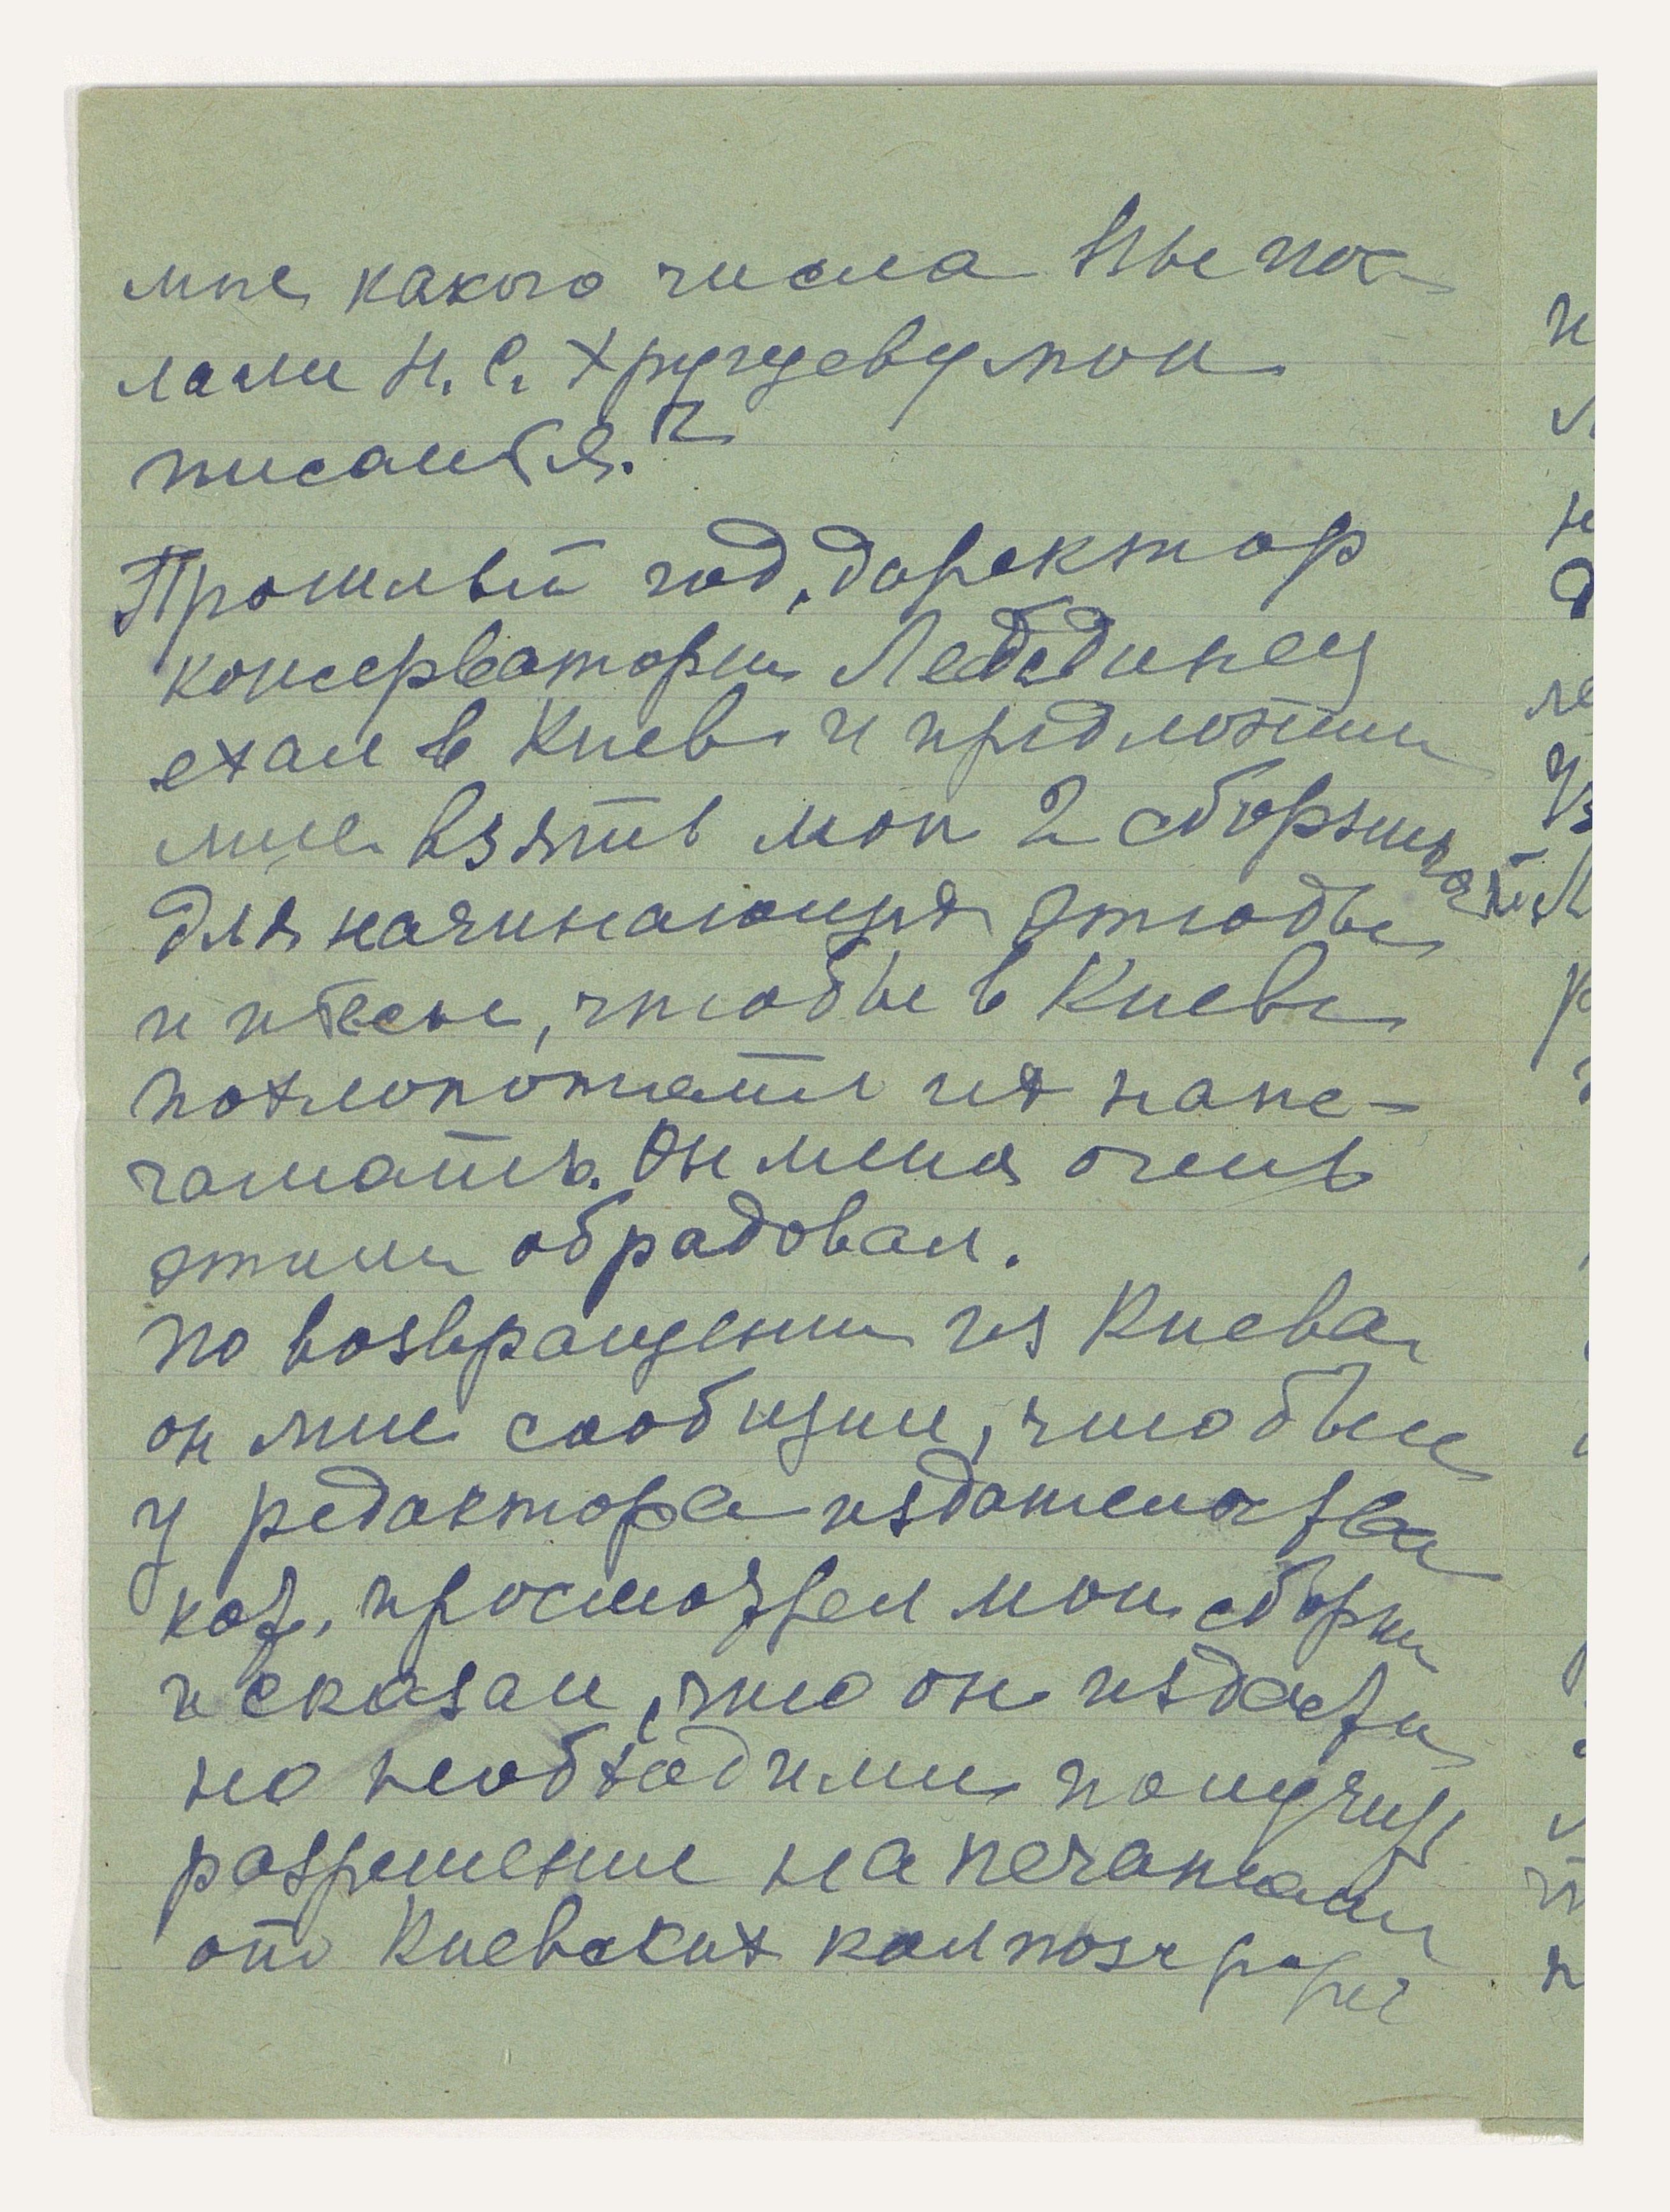 мне какого числа Вы пос-
лали Н. С. Хрущеву мои
писания?
Прошлый год, директор
консерватории Лебединец
ехал в Киев и предложил
мне взять мои 2 сборника
для начинающих этюды
и пьесы, чтобы в Киеве
похлопотать их напе-
чатать. Он меня очень
этим обрадовал.
по возвращении из Киева
он мне сообщил, что был
у редактора издательства
кот. просмотрел мои сборни
и сказал, что он издаст их
но необходимо получить
разрешение на печатание
от Киевских композиторов